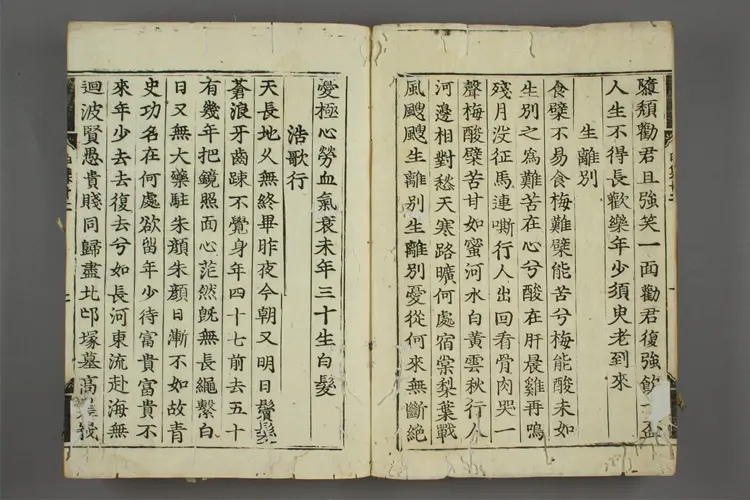 隳頹勸君且強笑一面勸君復強飲一盃
人生不得長歡樂年少須臾老到來
生離別
食檗不易食梅難檗能苦兮梅能酸未如
生別之為難苦在心兮酸在肝晨雞再鳴
殘月没征馬連嘶行人出回看骨肉哭一
聲梅酸檗苦甘如蜜河水白黃雲秋行人
河邊相對愁天寒路曠何處宿棠梨葉戰
風颼颼生離別生離別憂從何來無斷絶
憂極心勞血氣衰未年三十生白髮
浩歌行
天長地久無終畢昨夜今朝又明日鬢髮
蒼浪牙齒踈不覺身年四十七前去五十
有幾年把鏡照面心茫然旣無長繩繫白
日又無大藥駐朱顏朱顏日漸不如故青
史功名在何處欲留年少待富貴富貴不
來年少去去復去兮如長河東流赴海無
迴波賢愚貴賤同歸盡北邙塚墓高